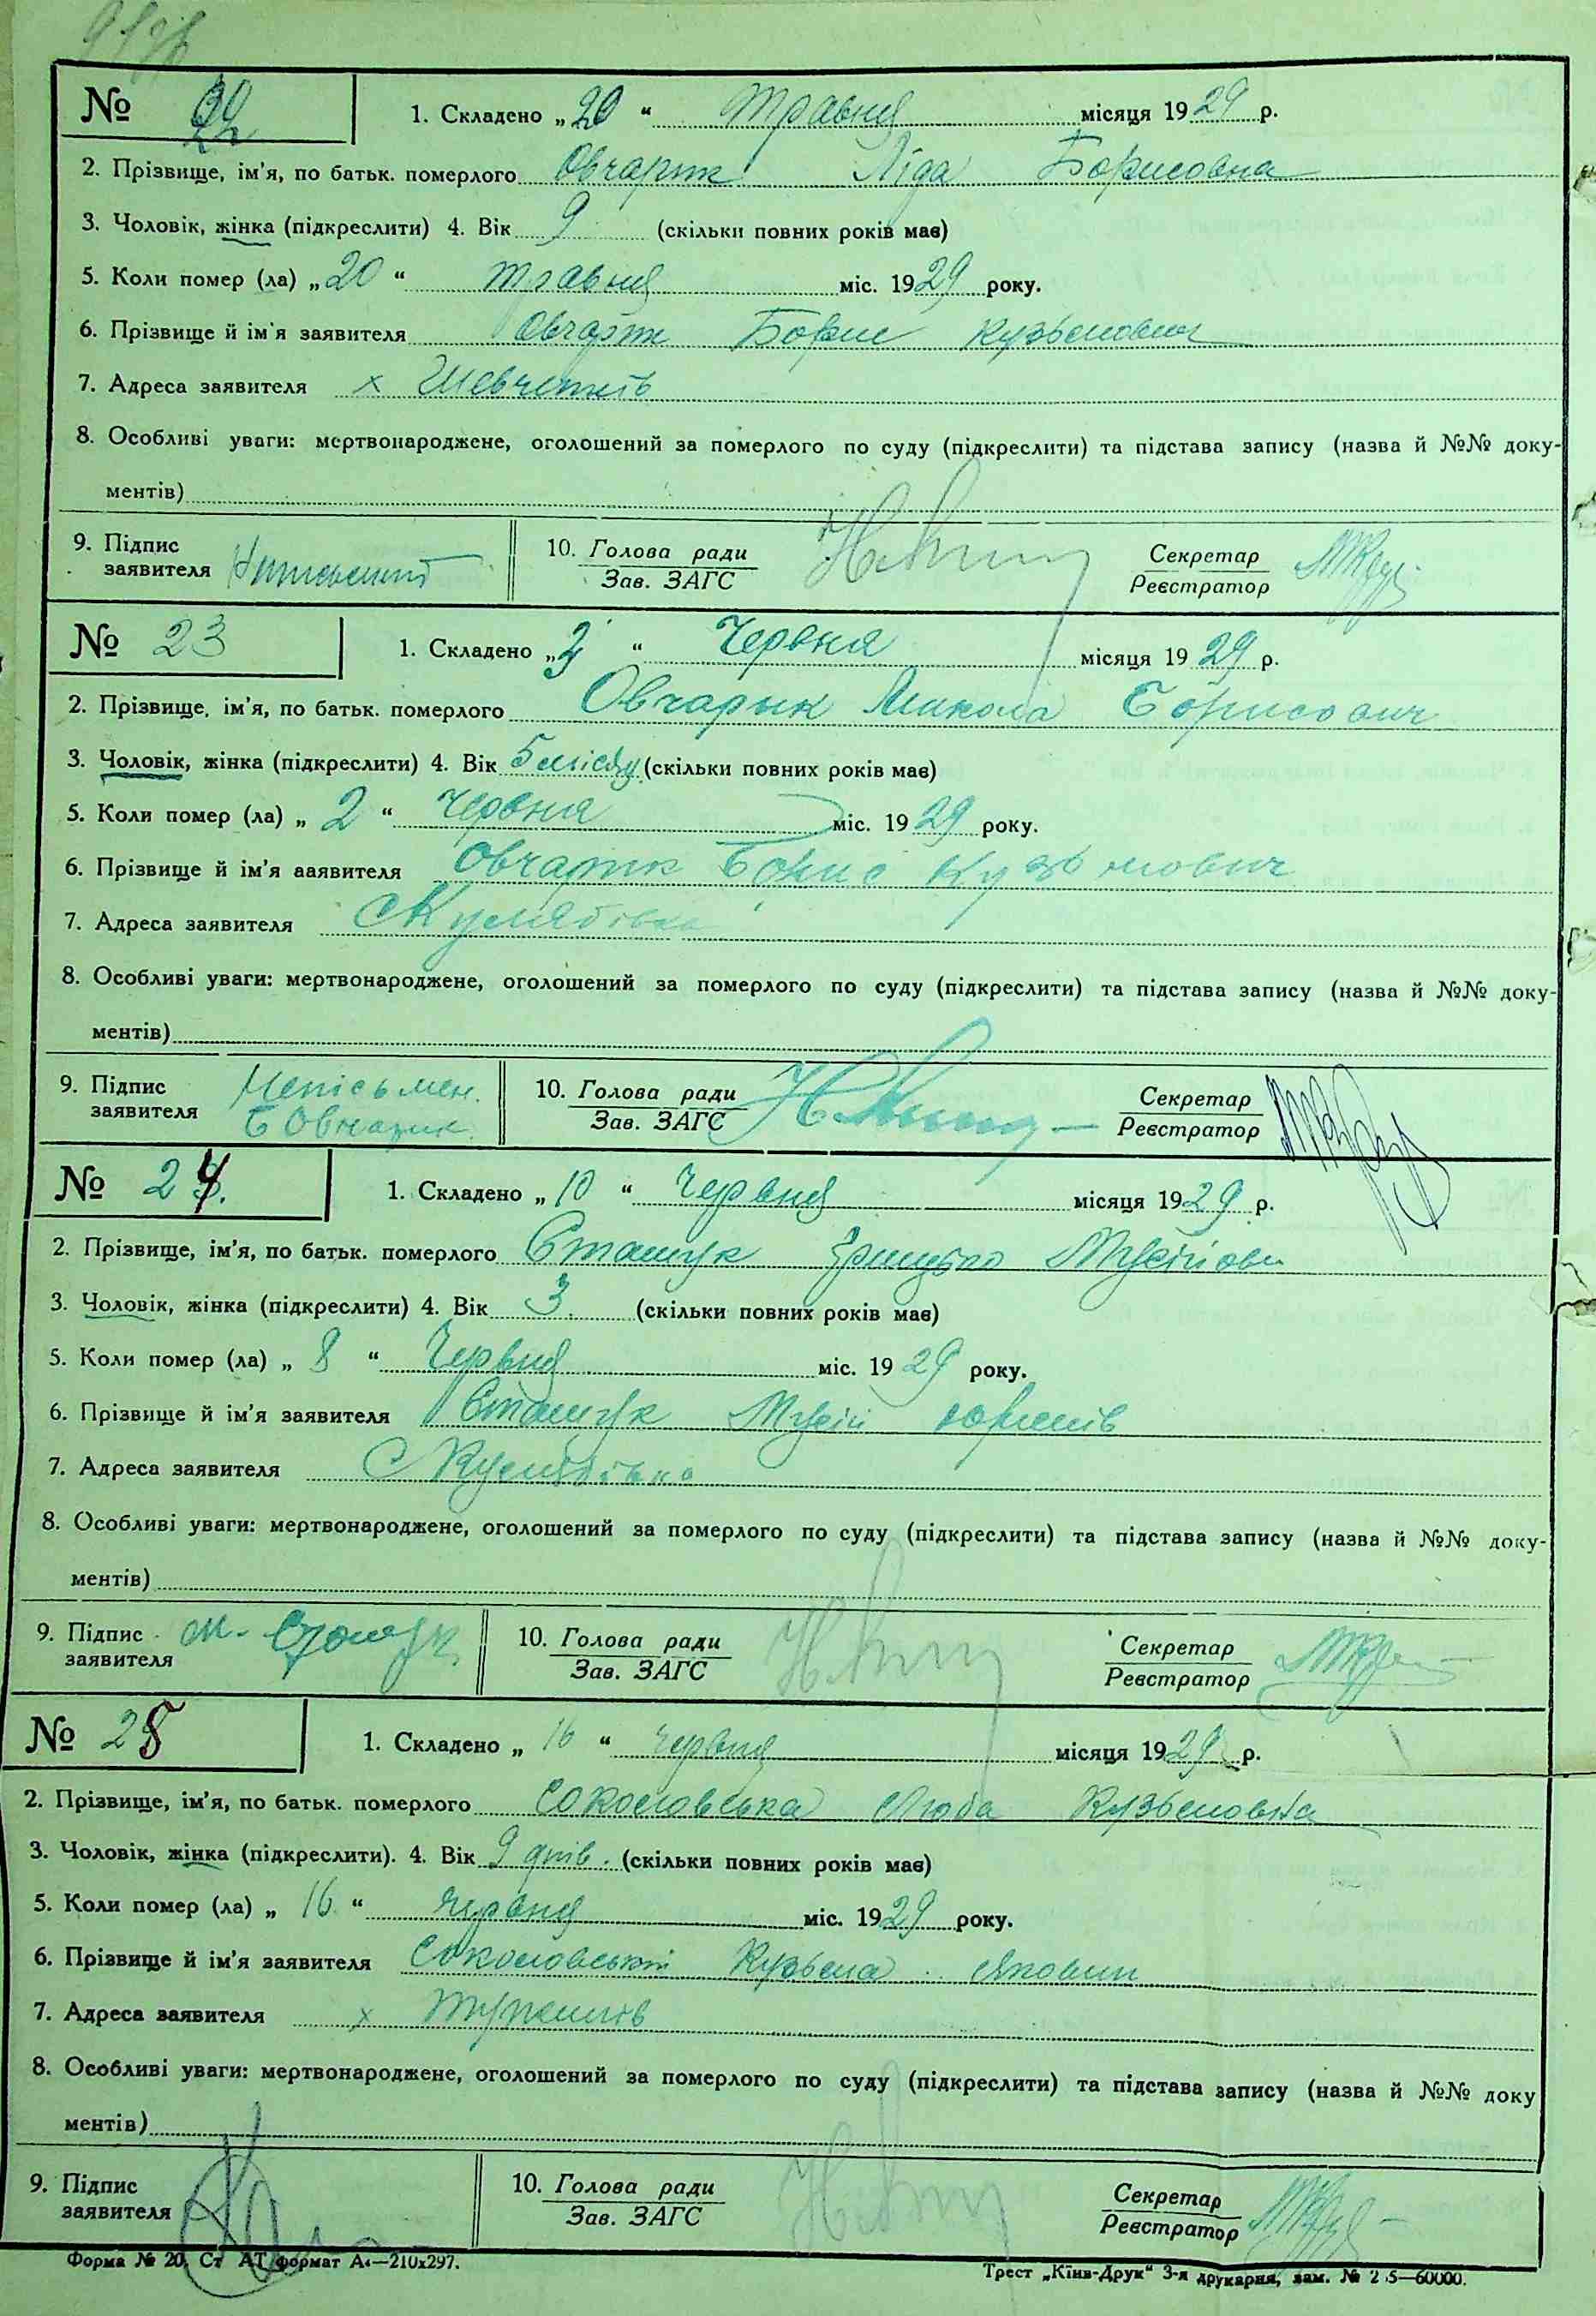 № 22 1. Складено „20“ травня місяця 1929 р.
2. Прізвище, ім'я, по батьк. померлого Овчарук Ліда Борисовна
3. Чоловік, жінка (підкреслити) 4. Вік 9 (скільки повних років має)
5. Коли помер (ла) „20“ травня міс. 1929 року.
6. Прізвище й ім'я заявителя Овчарук Борис Кузьмович
7. Адреса заявителя х
8. Особливі уваги: мертвонароджене, оголошений за померлого по суду (підкреслити) та підстава запису (назва й №№ доку-
ментів)
9. Підпис заявителя 10. Голова ради Зав. ЗАГС Секретар Реєстратор
№ 23 1. Складено „ “ Червня місяця 1929 р.
2. Прізвище, ім'я, по батьк. померлого Овчарык Микола Борисович
3. Чоловік, жінка (підкреслити) 4. Вік 5 місяц (скільки повних років має)
5. Коли помер (ла) „2“ Червня міс. 1929 року.
6. Прізвище й ім'я заявителя Овчарук Борис Кузьмович
7. Адреса заявителя С Кулябівка
8. Особливі уваги: мертвонароджене, оголошений за померлого по суду (підкреслити) та підстава запису (назва й №№ доку-
ментів)
9. Підпис заявителя Непісьмен. Б Овчарик 10. Голова ради Зав. ЗАГС Секретар Реєстратор
№ 24. 1. Складено „10“ Червня місяця 1929 р.
2. Прізвище, ім'я, по батьк. померлого Сташук Грицько Мусійови
3. Чоловік, жінка (підкреслити) 4. Вік 3. (скільки повних років має)
5. Коли помер (ла) „8“ Червня міс. 1929 року.
6. Прізвище й ім'я заявителя Сташук Мусій
7. Адреса заявителя С Кулябівка
8. Особливі уваги: мертвонароджене, оголошений за померлого по суду (підкреслити) та підстава запису (назва й №№ доку-
ментів)
9. Підпис заявителя М. Сташук 10. Голова ради Зав. ЗАГС Секретар Реєстратор
№ 25 1. Складено „16“ червня місяця 1929 р.
2. Прізвище, ім'я, по батьк. померлого Сокословська Люба Кузьмовна
3. Чоловік, жінка (підкреслити). 4. Вік 9 днів. (скільки повних років має)
5. Коли помер (ла) „16“ червня міс. 1929 року.
6. Прізвище й ім'я заявителя Сокословський Кузьма
7. Адреса заявителя х
8. Особливі уваги: мертвонароджене, оголошений за померлого по суду (підкреслити) та підстава запису (назва й №№ доку
ментів)
9. Підпис заявителя 10. Голова ради Зав. ЗАГС Секретар Реєстратор
Форма № 20, Ст АТ формат А4—210х297. Трест „Київ-Друк“ 3-я друкарня, зам. № 2 5—60000.